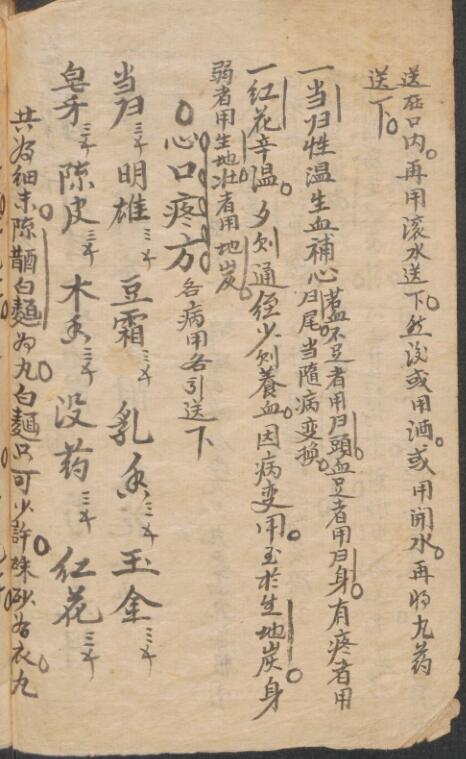 送在口内。再用滚水送下。然後或用酒。或用開水。再将丸药
送下。
一当归性温生血補心若血不足者用归頭血足者用归身有疼者用
归尾当隨病变換。
一红花辛温。多则通经少则養血。因病变用。至於生地炭身
弱者用生地壮者用地炭。
心口疼方 各病用各引送下
当归三千 明雄三千 豆霜三千 乳香三千 玉金三千
皂牙三千 陈皮三千 木香三千 没药三千 红花三千
共为细末。陈醋白麵为丸。白麵只可少許。硃砂为衣。丸